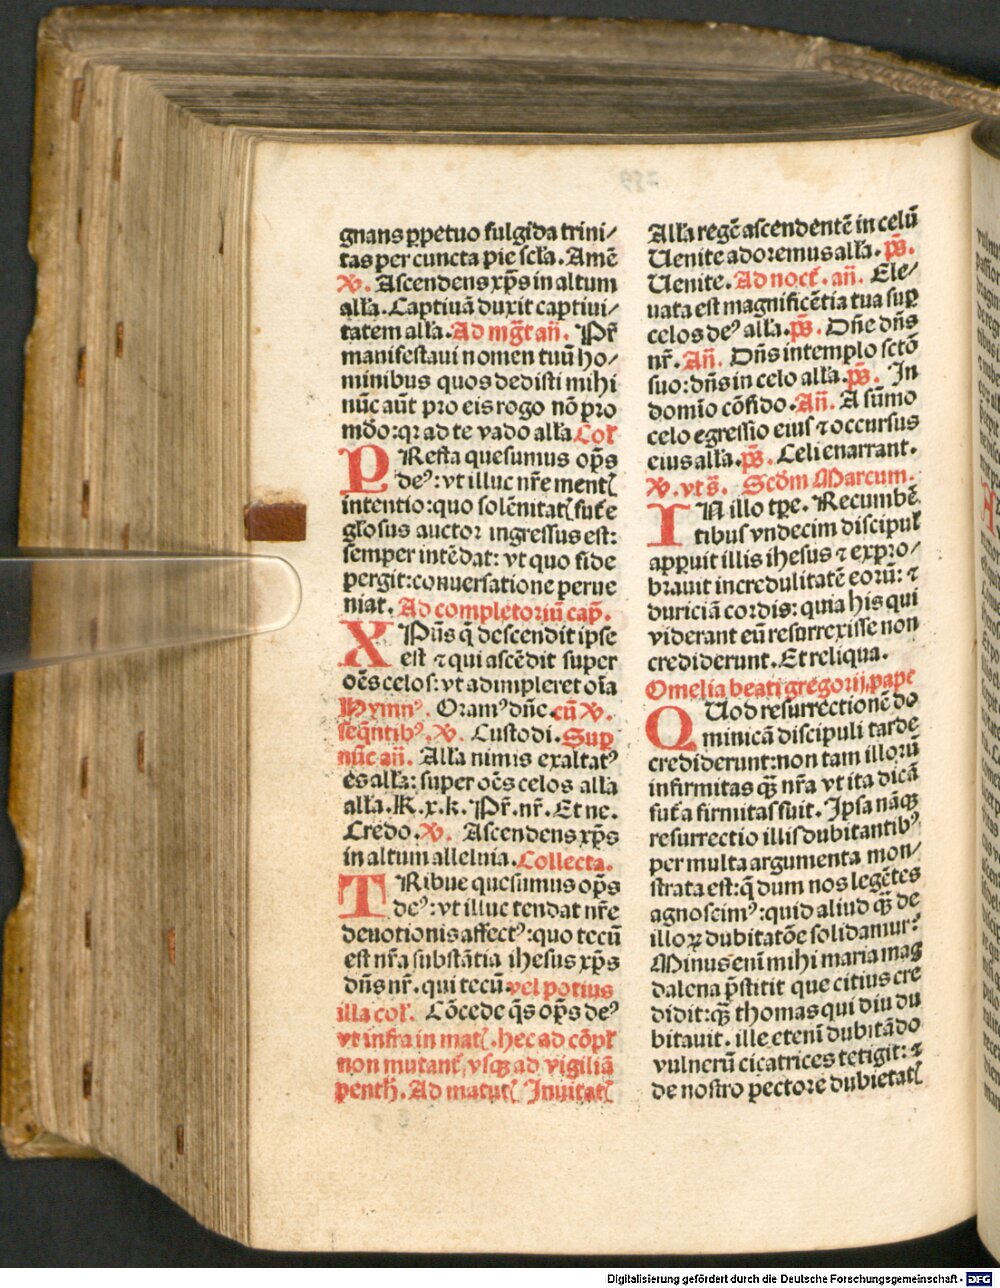 gnans ꝑpetuo fulgida trini⸗
tas per cuncta pie scła. Amē
℣. Ascendens xp̄s in altum
ałła. Captiuā duxit captiui⸗
tatem ałła. Ad mgͬt añ. Pr̄
manifestaui nomen tuū ho⸗
minibus quos dedisti mihi
nūc aūt pro eis rogo nō pro
mōo: qꝛ ad te vado ałła Coł
PResta quesumus op̄s
deꝰ: vt illuc nr̄e ment
intentio: quo solēnitat fut̄e
gło̅sus auctor ingressus est:
semper intēdat: vt quo fide
pergit: conuersatione perue
niat. Ad completoriū cap̄.
XPūs q̄ descendit ipse
est ⁊ qui ascēdit super
oēs celos: vt adimpleret oīa
Hymnꝰ. Oramꝰ dn̄e. cū ℣.
seqn̄tibꝰ. ℣. Custodi. Sup̄
nūc añ. Ałła nimis exaltatꝰ
es ałła: super oēs celos alla
alla. K. x. k. Pr̄. nr̄. Et ne.
Credo. ℣. Ascendens xp̄s
in altum alleluia. Collecta.
TRibue quesumus op̄s
deꝰ: vt illuc tendat nr̄e
deuotionis affectꝰ: quo tecū
est nr̄a substātia ihesus xp̄s
dn̄s nr̄. qui tecū. vel potius
illa coł. Cōcede q̄s op̄s deꝰ
vt infra in mat. hec ad cōpł
non mutant̄ vsqꝫ ad vigiliā
penth̄. Ad matut Inuitat
Ałła regē ascendentē in celū
Uenite adoremus ałła. ps̄.
Uenite. Ad noct̄. añ. Ele⸗
uata est magnificētia tua sup̄
celos deꝰ ałła. ps̄. Dn̄e dn̄s
nr̄. Añ. Dn̄s in templo sctō
suo: dn̄s in celo ałła. ps̄. In
domīo cōfido. Añ. A sūmo
celo egressio eius ⁊ occursus
eius ałła. ps̄. Celi enarrant.
℣. vt s̄. Scd̄m Marcum.
IN illo tp̄e. Recumbē
tibus vndecim discipuł
appuit illis ihesus ⁊ expro⸗
brauit incredulitatē eorū: ⁊
duriciā cordis: quia his qui
viderant eū resurrexisse non
crediderunt. Et reliqua.
Omelia beati gregorij pape
QUod resurrectionē do
minicā discipuli tarde
crediderunt: non tam illorū
infirmitas qꝫ̄ nr̄a vt ita dicā
fut̄a firmitas fuit. Ipsa nāqꝫ
resurrectio illis dubitantibꝰ
per multa argumenta mon⸗
strata est: q̄ dum nos legētes
agnoscimꝰ: quid aliud qꝫ̄ de
illoꝝ dubitatōe solidamur?
Minus eni̅ mihi maria mag
dalena p̄stitit que citius cre
didit: qꝫ̄ thomas qui diu du
bitauit. ille eteni̅ dubitādo
vulnerū cicatrices tetigit: ⁊
de nostro pectore dubietat
Digitalisierung gefördert durch die Deutsche Forschungsgemeinschaft - DFG